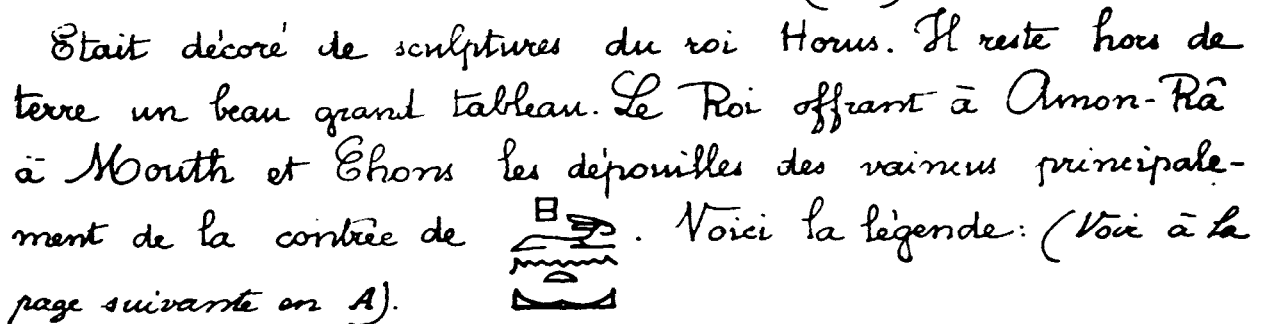 Etait décoré de sculptures du roi Horus. Il reste hors de
terre un beau grand tableau. Le Roi offrant à Amon-Râ
à Mouth et Chons les dépouilles des vaincus principale-
ment de la contrée de . Voici la légende: (Voir à la
page suivante en A).